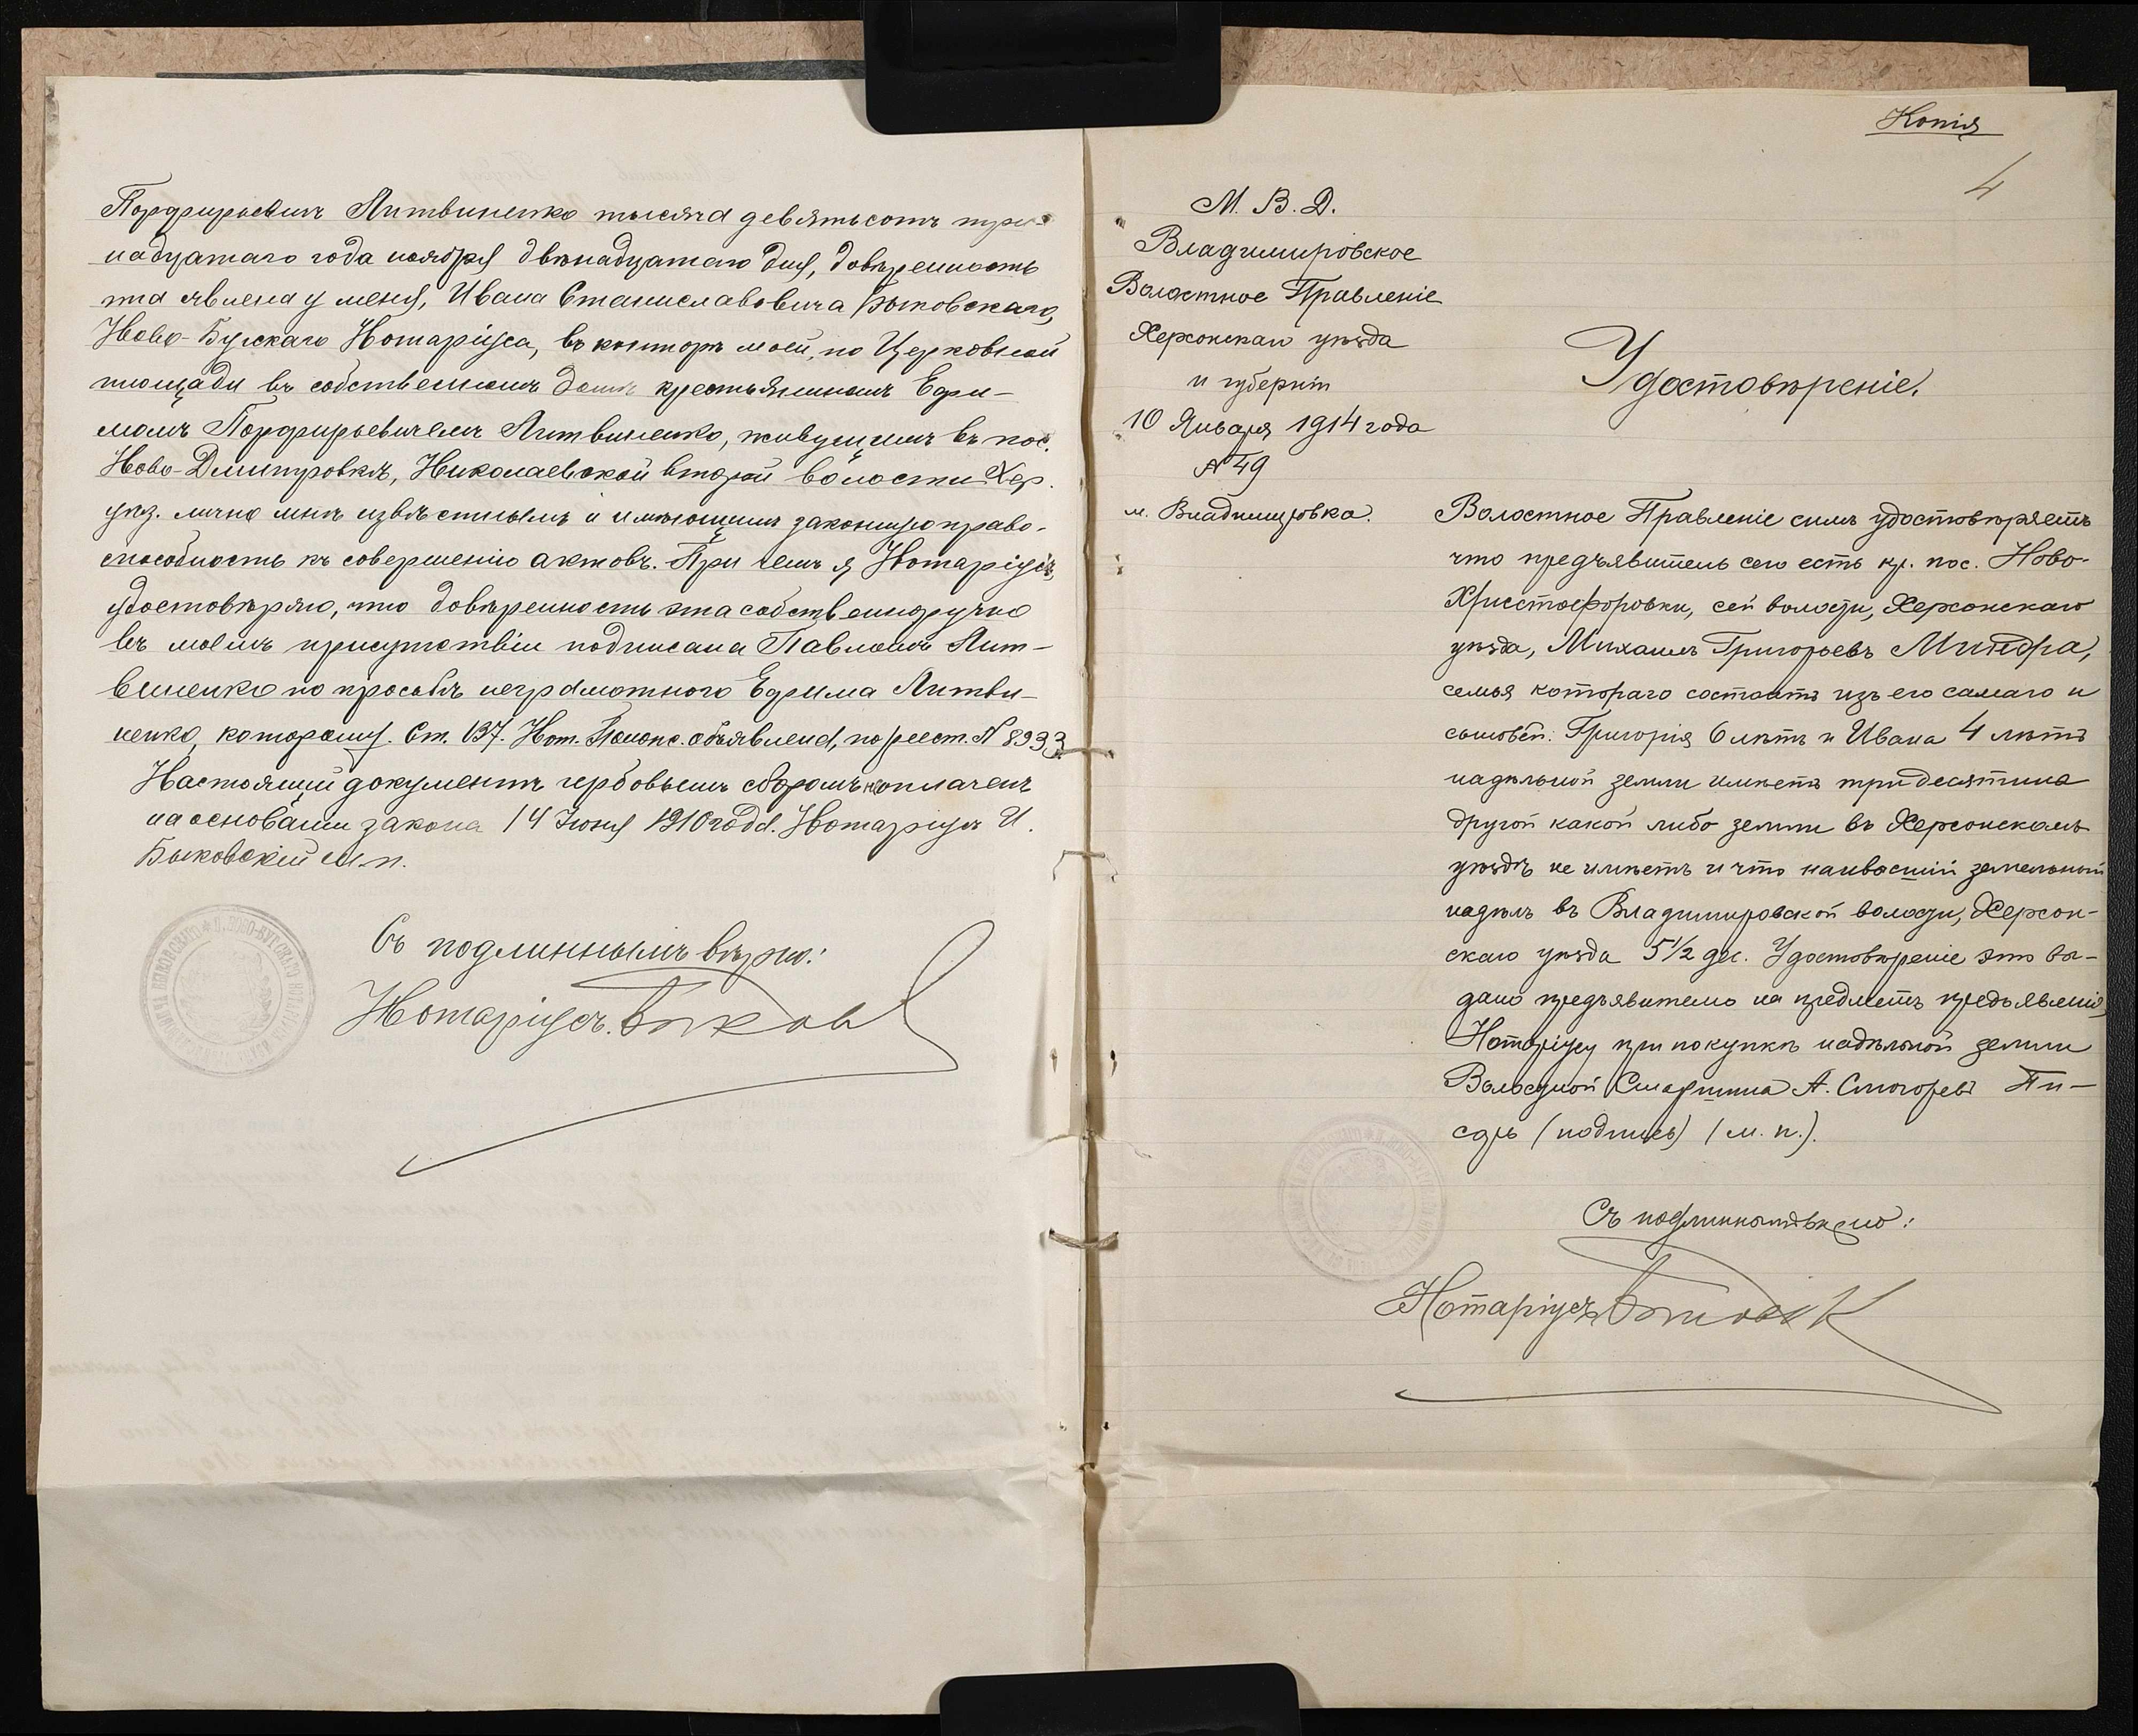 Порфирьевичъ Литвиненко тысяча девятьсотъ три-
надцатаго года ноября двѣнадцатаго дня, довѣренность
эта явлена у меня, Ивана Станиславовича Быковскаго,
Ново-Бугскаго Нотаріуса, въ конторѣ моей, по Церковной
площади въ собственномъ домѣ крестьяниномъ Ефи-
момъ Порфирьевичемъ Литвиненко, живущимъ въ пос.
Ново-Дмитровкѣ, Николаевской второй волости Хер.
уѣз. лично мнѣ извѣстнымъ и имѣющимъ законную право-
способность къ совершенію актовъ. При чемъ я Нотаріусъ,
удостовѣряю, что довѣренность эта собственноручно
въ моемъ присутствіи подписана Павломъ Лит-
виненко по просьбѣ неграмотного Ефима Литви-
ненко, которому Ст. 137. Нот. Полож. объявлена, по реест. № 8933
Настоящій документъ гербовымъ сборомъ не оплаченъ
на основаніи закона 14 Іюня 1910 года. Нотаріусъ И.
Быковскій м.п.
Съ подлиннымъ вѣрно:
Нотаріусъ
Копія
4
М. В. Д.
Владимировское
Волостное Правленіе
Херсонскаго уѣзда
и губерніи
10 Января 1914 года
№ 49
м. Владимировка.
Удостовѣреніе.
Волостное Правленіе симъ удостовѣряетъ
что предъявитель сего есть кр. пос. Ново-
Христофоровки, сей волости, Херсонскаго
уѣзда, Михаилъ Григорьевъ
семья котораго состоитъ изъ его самаго и
сыновей: Григорія 6 лѣтъ и Ивана 4 лѣтъ
надѣльной земли имѣетъ три десятины
другой какой либо земли въ Херсонскомъ
уѣздѣ не имѣетъ и что наивысшій земельный
надѣлъ въ Владимировской волости, Херсон-
скаго уѣзда 5½ дес. Удостовѣреніе это вы-
дано предъявителю на предметъ предъявленія
Нотаріусу при покупкѣ надѣльной земли
Волостной Старшина А. Пи-
сарь (подпись) (м. п.).
Съ подлиннымъ вѣрно:
Нотаріусъ